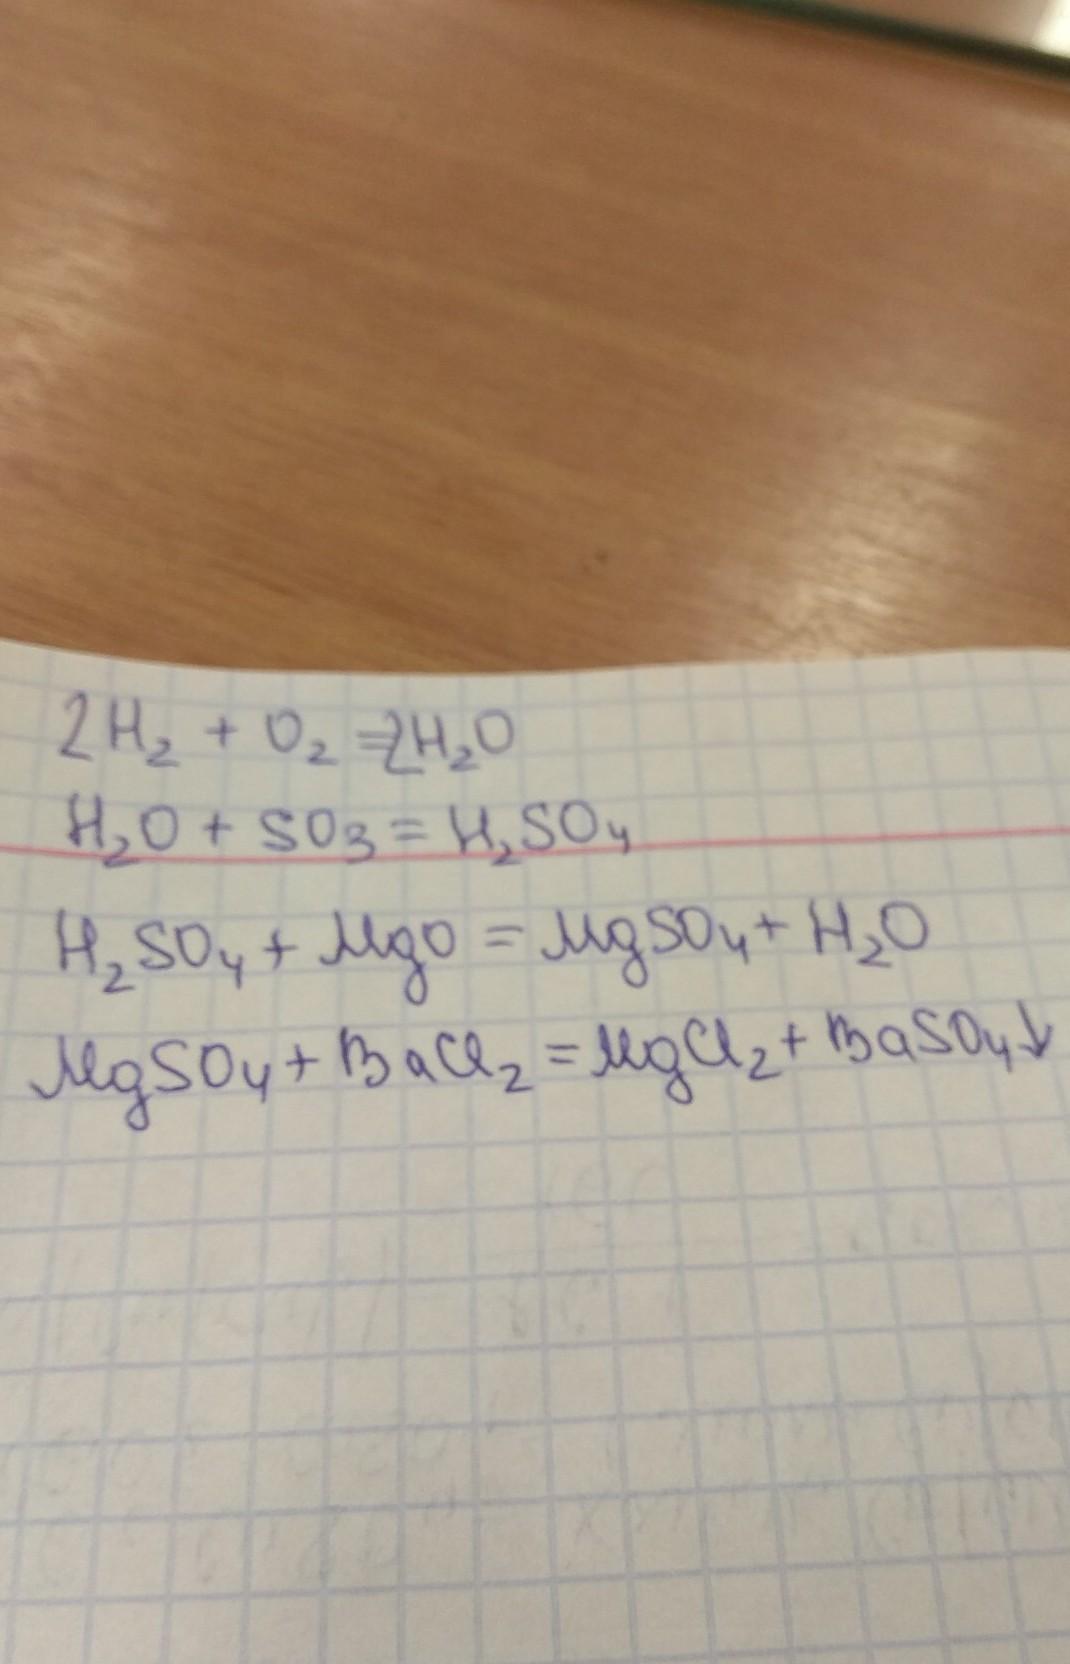 2H₂ + O₂ = 2H₂O
H₂O + SO₃ = H₂SO₄
H₂SO₄ + MgO = MgSO₄ + H₂O
MgSO₄ + BaCl₂ = MgCl₂ + BaSO₄↓